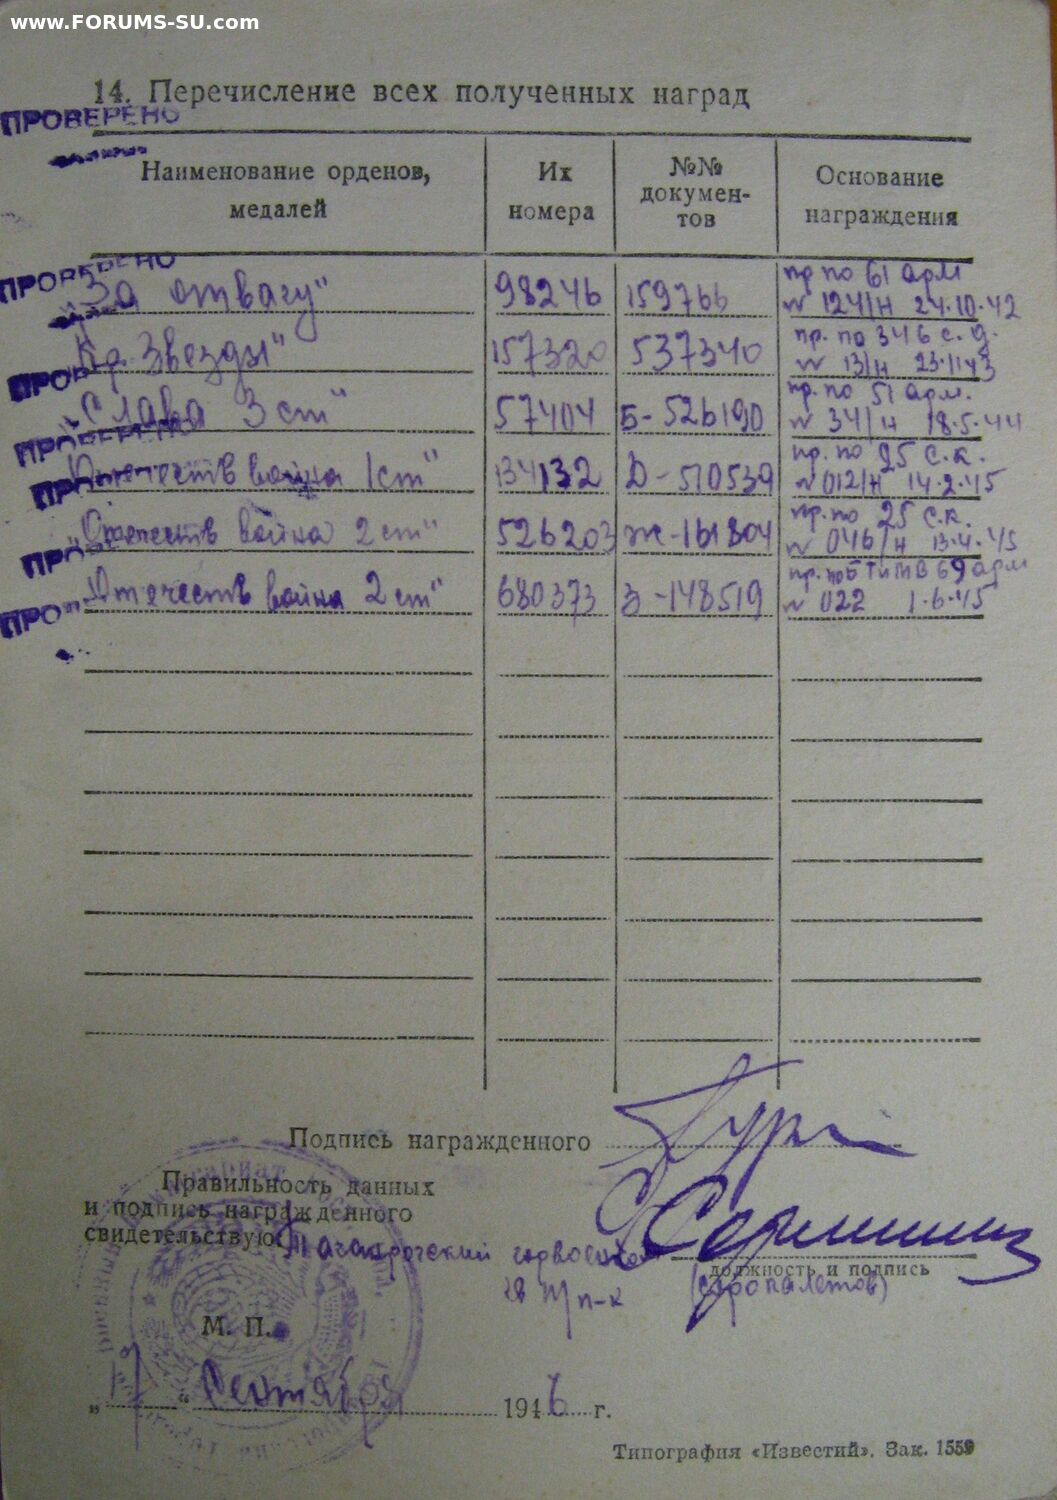 www.FORUMS-SU.com
14. Перечисление всех полученных наград
ПРОВЕРЕНО
Наименование орденов, медалей
Их номера
№№ докумен-тов
Основание награждения
ПРОВЕРЕНО
"За отвагу" 98246 159766 пр по 61 арм № 124/н 24.10.42
ПРОВ
"Кр. Звезды" 157320 537340 пр. по 346 с.д. № 13/н 23.11.43
"Слава 3 ст" 57404 Б-526190 пр. по 51 арм. № 34/н 18.5.44
ПРОВЕРЕНО
"Отечеств война 1 ст" 134132 Д-510539 пр. по 25 с.к. № 012/н 14.2.45
ПРО
"Отечеств война 2 ст" 526203 Ж-161804 пр. по 25 с.к. № 046/н 13.4.45
ПРОВ
"Отечеств война 2 ст" 680373 З-148519 пр. по БТиМВ 69 арм № 022 1.6.45
ПРО
Подпись награжденного
Правильность данных
и подпись награжденного
свидетельствую: Таганрогский горвоенком
должность и подпись
п/п-к
М. П.
„17“ Сентября 1946 г.
Типография «Известий». Зак. 1559